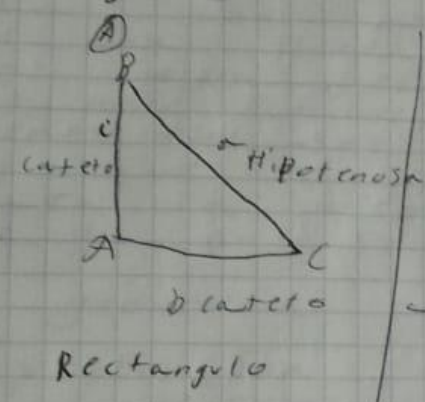 A
B
c
cateto
a Hipotenosa
A
C
b cateto
Rectangulo